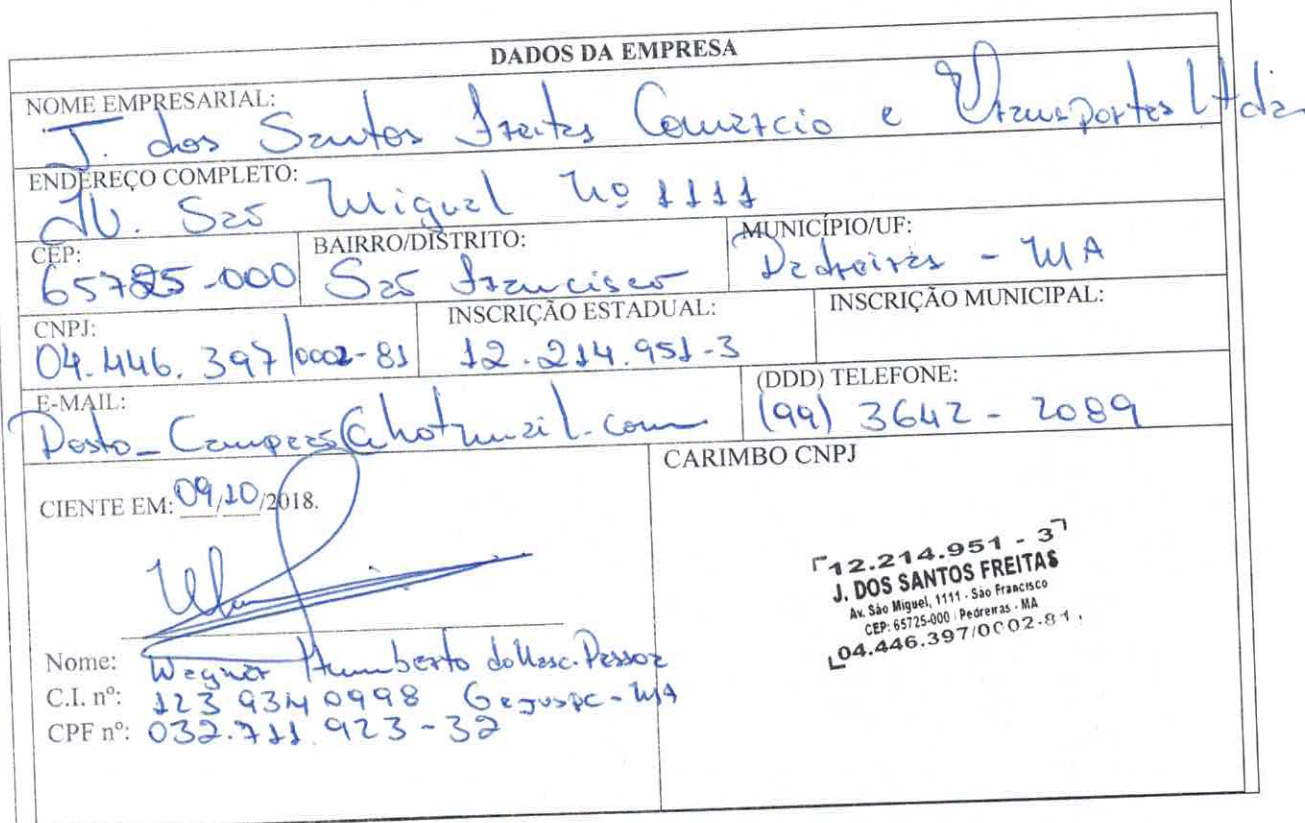 DADOS DA EMPRESA
NOME EMPRESARIAL:
J. dos Santos Freitas Comércio e Transportes Ltda
ENDEREÇO COMPLETO:
AV. São Miguel Nº 1111
CEP:
65725-000
BAIRRO/DISTRITO:
São Francisco
MUNICÍPIO/UF:
Pedreiras - MA
CNPJ:
04.446.397/0002-81
INSCRIÇÃO ESTADUAL:
12.214.951-3
INSCRIÇÃO MUNICIPAL:
E-MAIL:
Posto_Campeas@hotmail.com
(DDD) TELEFONE:
(99) 3642 - 2089
CIENTE EM: 09/10/2018.
Nome: Wagner Humberto do Nasc. Pessoa
C.I. nº: 123 934 0998 Gejuspc - MA
CPF nº: 032.711.923-32
CARIMBO CNPJ
12.214.951 - 3
J. DOS SANTOS FREITAS
Av. São Miguel, 1111 - São Francisco
CEP: 65725-000 Pedreiras - MA
04.446.397/0002-81